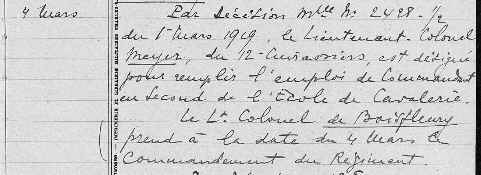 4 Mars
Par Décision Mlle No 2428-1/2
du 1er Mars 1919, le Lieutenant-Colonel
Meyer, du 12e Cuirassiers, est désigné
pour remplir l'emploi de Commandant
en Second de l'Ecole de Cavalerie.
Le Lt Colonel de Boisfleury
prend à la date du 4 Mars le
Commandement du Régiment.